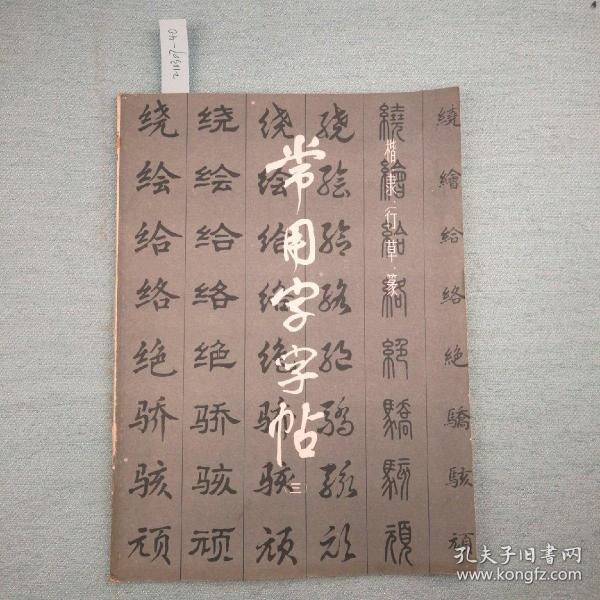 常用字字帖
三
楷、隶、行、草、篆
绕 绕 绕 绕 繞 繞
绘 绘 绘 绘 繪 繪
给 给 给 给 給 給
络 络 络 络 絡 絡
绝 绝 绝 绝 絕 絶
骄 骄 骄 驕 驕 驕
骇 骇 骇 骇 駭 駭
顽 顽 顽 顽 頑 頑
孔夫子旧书网
www.kongfz.com